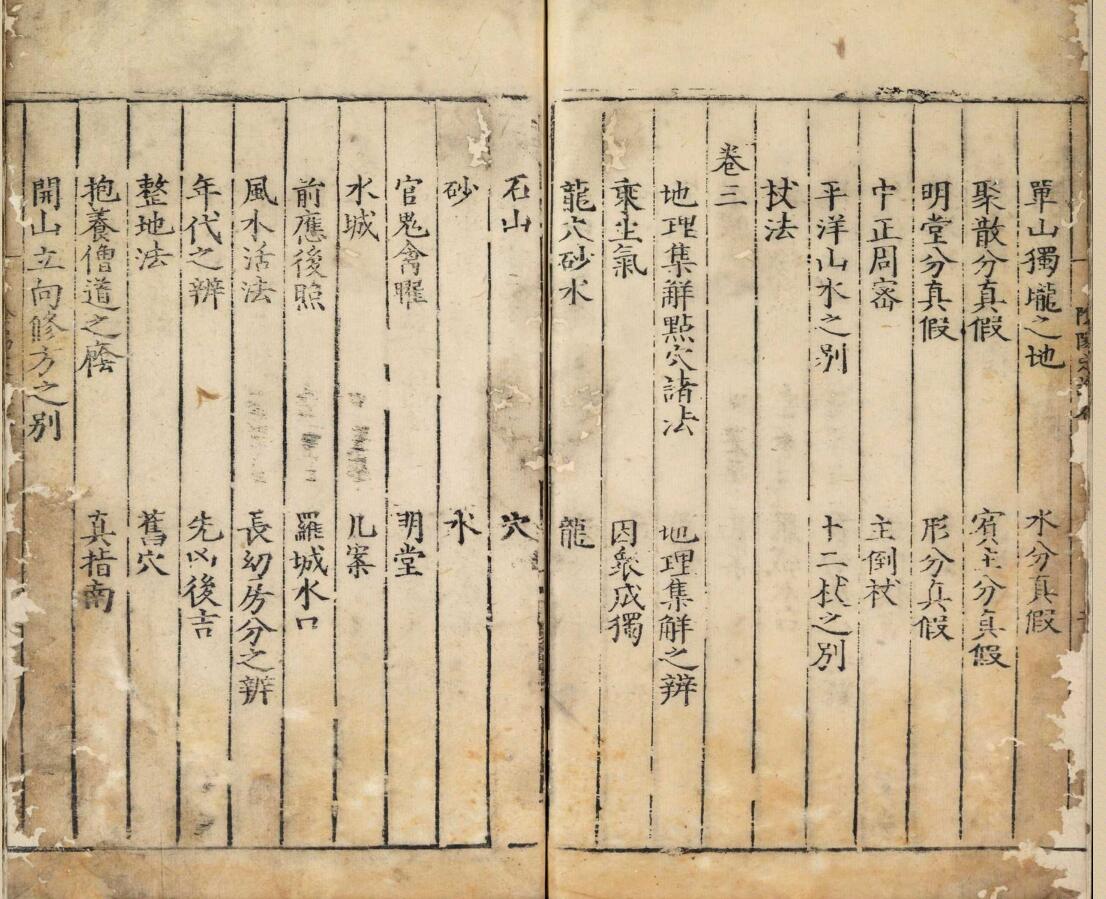 單山獨壠之地　水分真假
聚散分真假　賓主分真假
明堂分真假　形分真假
中正周宻　主倒杖
平洋山水之别　十二杖之別
杖法
卷三
地理集解點穴諸法　地理集解之辨
乘生氣　因衆成獨
龍穴砂水　龍
石山　穴
砂　水
官鬼禽曜　明堂
水城　几案
前應後照　羅城水口
風水活法　長幼房分之辨
年代之辨　先凶後吉
整地法　舊穴
抱養僧道之廕　真指南
開山立向修方之别